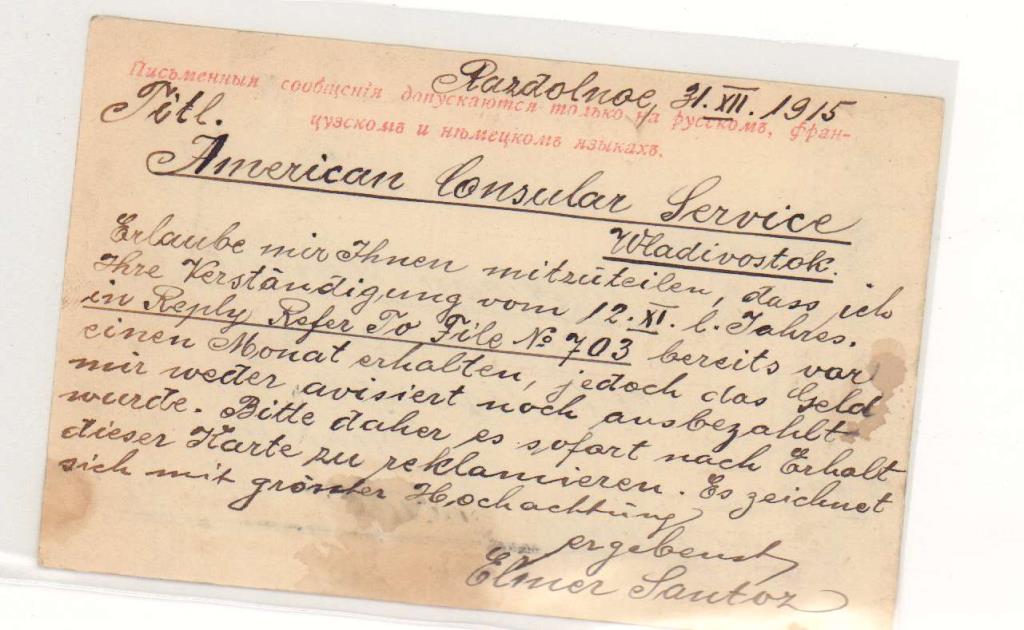 Razdolnoe, 31. XII. 1915
Письменныя сообщенія допускаются только на русскомъ, фран-
цузскомъ и нѣмецкомъ языкахъ.
Titl.
American Consular Service
Wladivostok.
Erlaube mir Ihnen mitzuteilen, dass ich
Ihre Verständigung vom 12. XI. l. Jahres.
in Reply Refer To File № 703 bereits vor
einen Monat erhalten, jedoch das Geld
mir weder avisiert noch ausbezahlt
wurde. Bitte daher es sofort nach Erhalt
dieser Karte zu reklamieren. Es zeichnet
sich mit grösster Hochachtung
ergebenst
Elmer Santoz